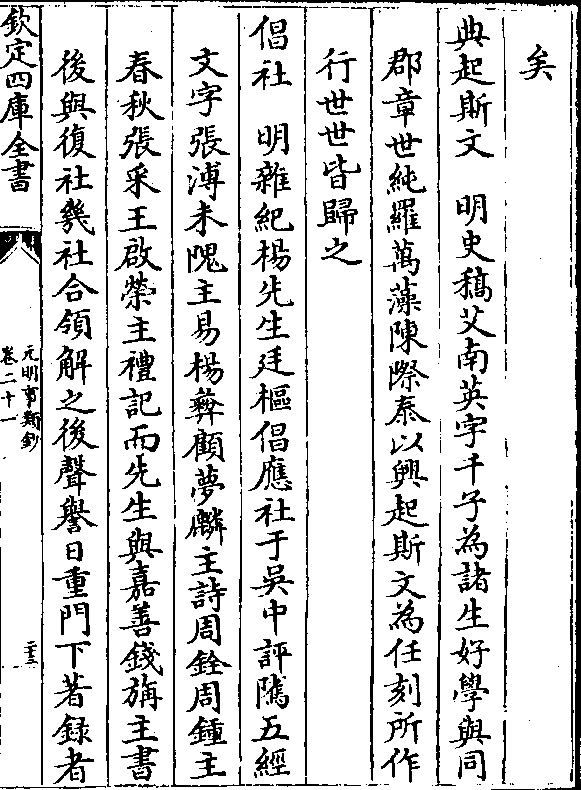 矣
典起斯文　明史稿艾南英字千子為諸生好學與同
郡章世純羅萬藻陳際泰以興起斯文為任刻所作
行世世皆歸之
倡社　明雜紀楊先生廷樞倡應社于吳中評隲五經
文字張溥朱隗主易楊彝顧夢麟主詩周銓周鍾主
春秋張采王啟榮主禮記而先生與嘉善錢旃主書
後與復社幾社合領解之後聲譽日重門下著録者
欽定四庫全書
元明事類鈔
卷二十一
二十三